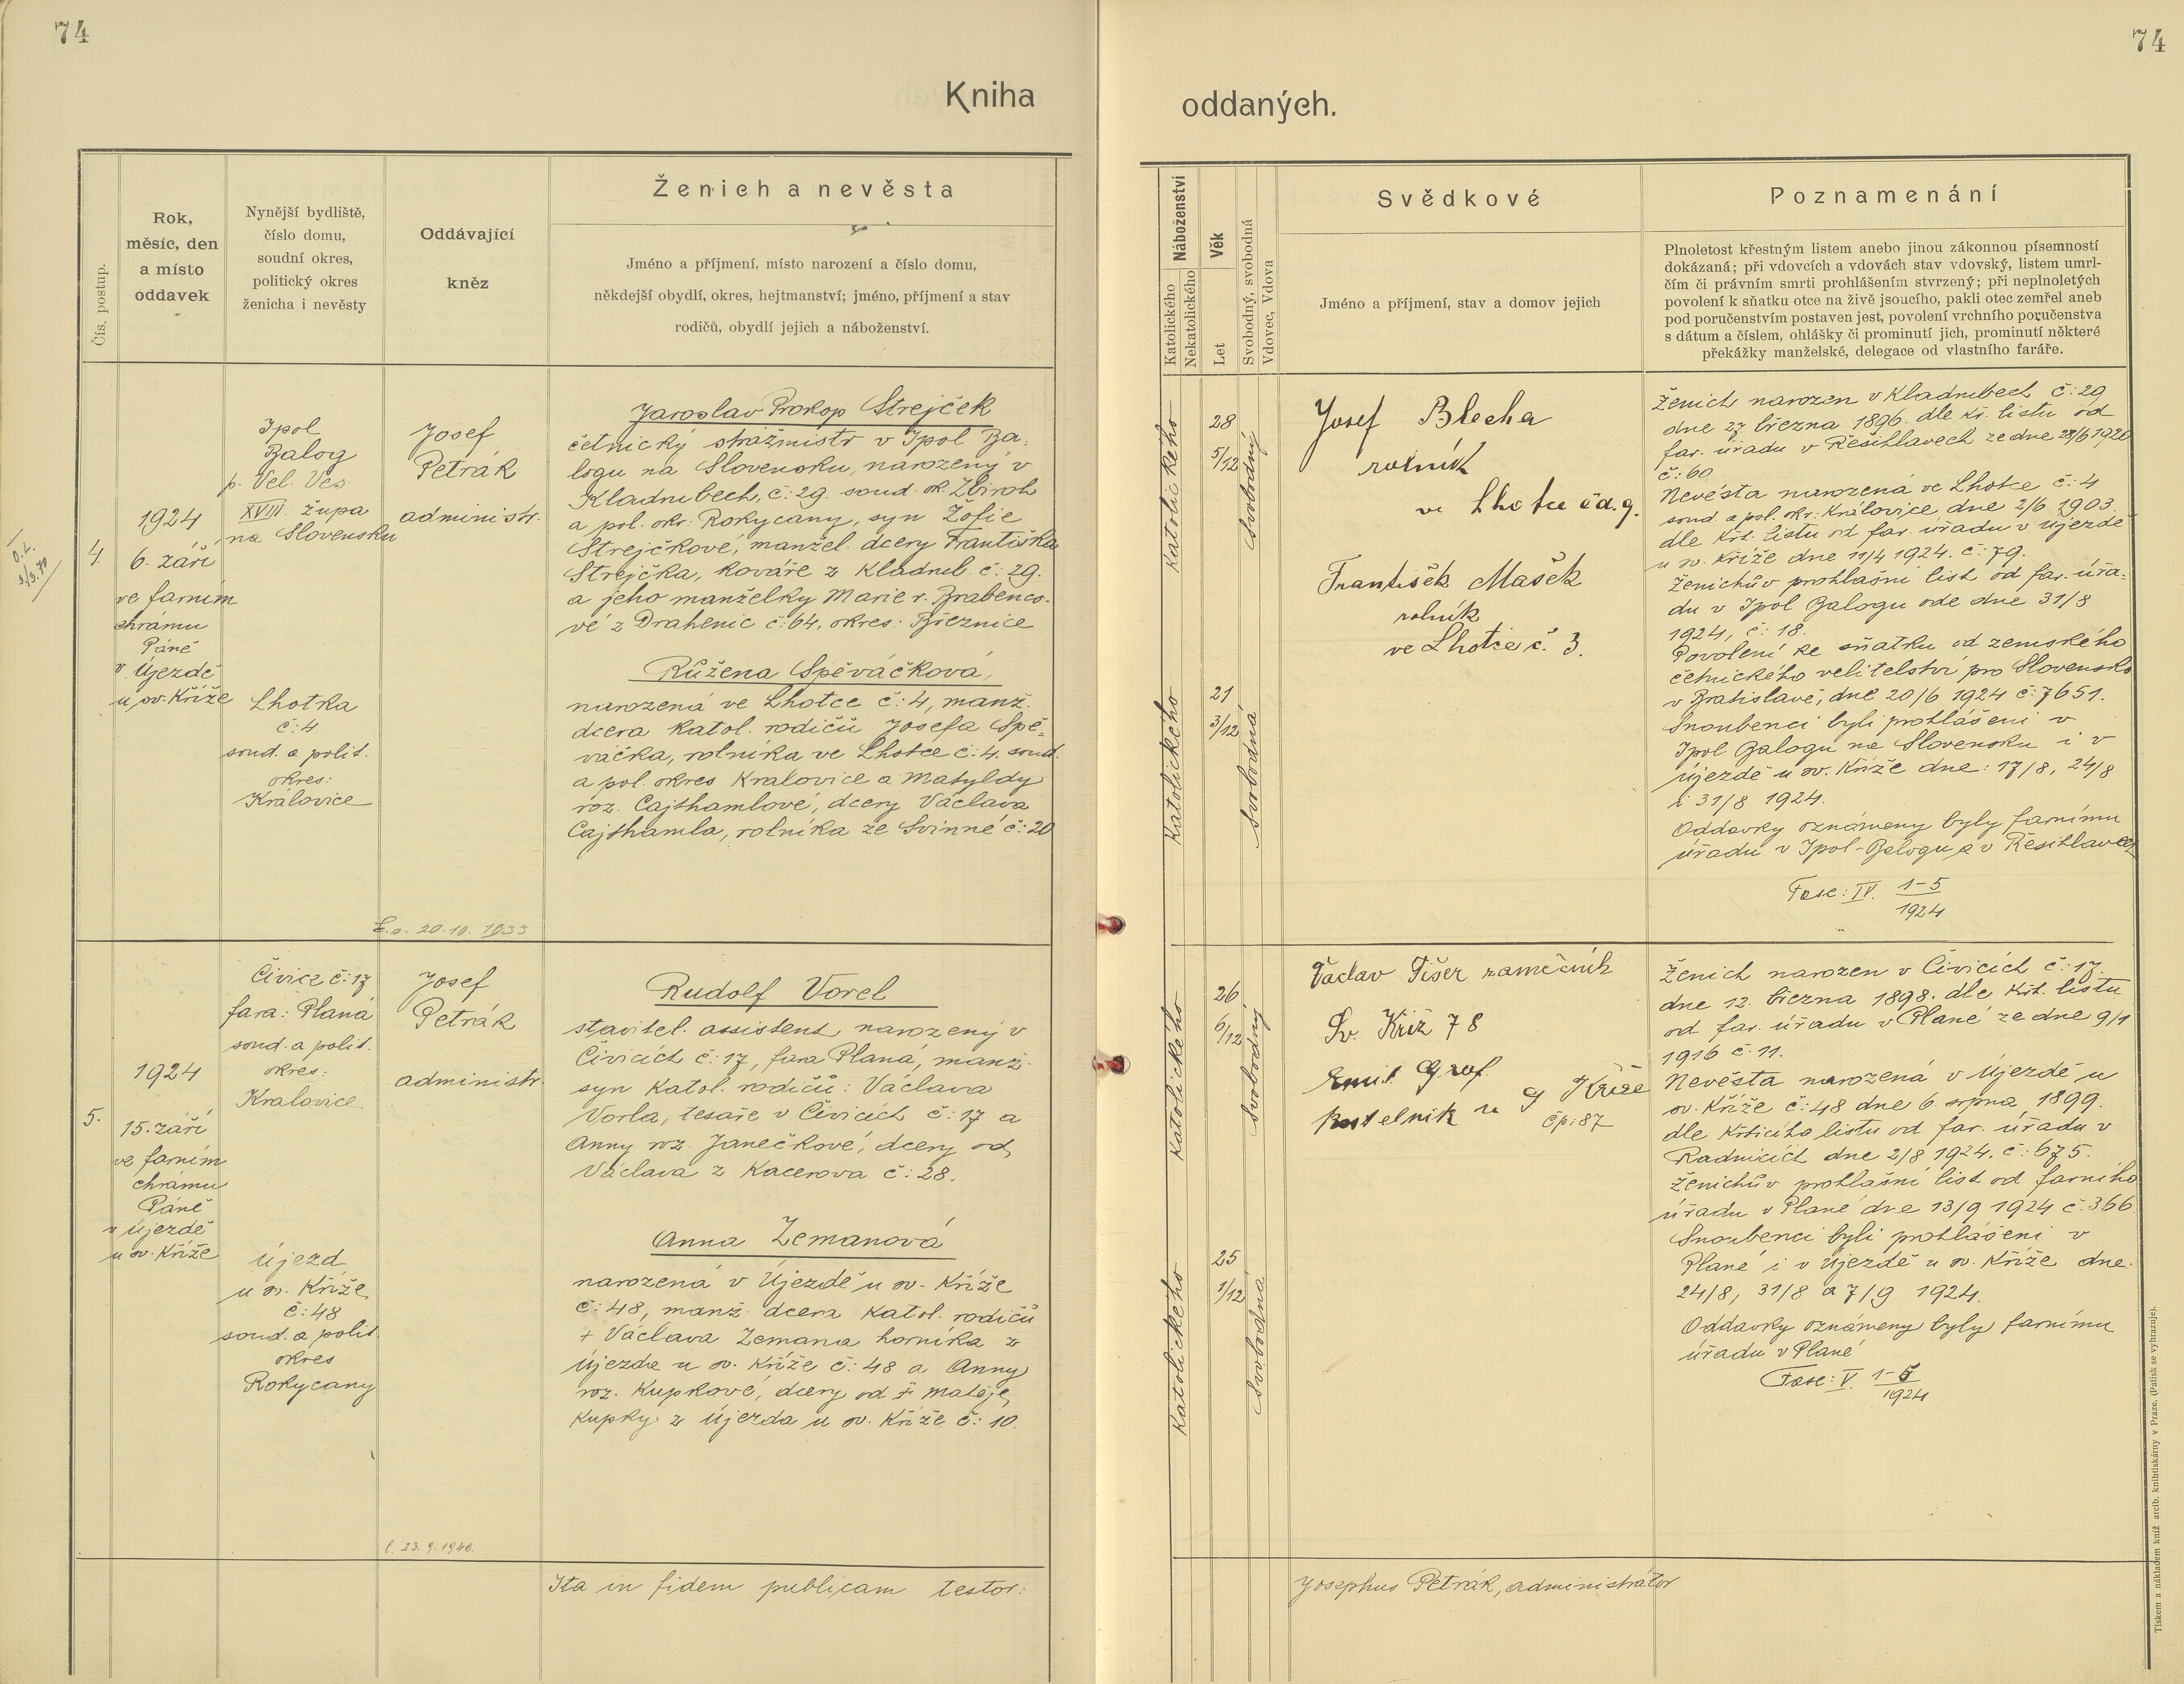 74
74
Kniha
oddaných.
Čís. postup.
Rok,
měsíc, den
a místo
oddavek
Nynější bydliště,
číslo domu,
soudní okres,
politický okres
ženicha i nevěsty
Oddávající
kněz
Ženich a nevěsta
Jméno a příjmení, místo narození a číslo domu,
někdejší obydlí, okres, hejtmanství; jméno, příjmení a stav
rodičů, obydlí jejich a náboženství.
Náboženství
Katolického
Nekatolického
Věk
Let
Svobodný, svobodná
Vdovec, Vdova
Svědkové
Jméno a příjmení, stav a domov jejich
Poznamenání
Plnoletost křestným listem anebo jinou zákonnou písemností
dokázaná; při vdovcích a vdovách stav vdovský, listem umrl-
čím či právním smrti prohlášením stvrzený; při neplnoletých
povolení k sňatku otce na živě jsoucího, pakli otec zemřel aneb
pod poručenstvím postaven jest, povolení vrchního poručenstva
s dátum a číslem, ohlášky či prominutí jich, prominutí některé
překážky manželské, delegace od vlastního faráře.
4.
1924
6. září
ve farním
chrámu
Páně
v Újezdě
u sv. Kříže
Ipol
Balog
p. Vel. Ves
XVIII. župa
na Slovensku
Lhotka
č: 4
soud. a polit.
okres:
Královice
Josef
Petrák
administr.
Jaroslav Prokop Strejček
četnický strážmistr v Ipol Ba-
logu na Slovensku, narozený v
Kladrubech, č: 29. soud. ok. Zbiroh
a pol. okr. Rokycany, syn Žofie
Strejčkové, manžel. dcery Františka
Strejčka, kováře z Kladrub č: 29.
a jeho manželky Marie r. Brabenco-
vé z Drahenic č: 64, okres: Březnice
Růžena Spěváčková,
narozená ve Lhotce č: 4, manž.
dcera katol. rodičů Josefa Spě-
váčka, rolníka ve Lhotce č: 4. soud.
a pol. okres Kralovice a Matyldy
roz. Cajthamlové, dcery Václava
Cajthamla, rolníka ze Svinné č: 20
20.10. 1933
Katolického
28
5/12
svobodný
Katolického
21
3/12
svobodná
Josef Blecha
rolník
ve Lhotce čd. 9.
František Mašek
rolník
ve Lhotce č. 3.
Ženich narozen v Kladrubech č: 29
dne 27. března 1896. dle kř. listu od
far. úřadu v Řešihlavech ze dne 28/6 1920
č: 60
Nevěsta narozená ve Lhotce č: 4
soud. a pol. okr: Královice dne 2/6 1903.
dle křt. listu od far. úřadu v Újezdě
u sv. Kříže dne 11/4 1924. č: 79.
Ženichův prohlašní list od far. úřa-
du v Ipol Balogu ode dne 31/8
1924, č: 18.
Povolení ke sňatku od zemského
četnického velitelství pro Slovensko
v Bratislavě, dne 20/6 1924 č: 7651.
Snoubenci byli prohlášeni v
Ipol Balogu na Slovensku i v
Újezdě u sv. Kříže dne: 17/8, 24/8
i 31/8 1924.
Oddavky oznámeny byly farnímu
úřadu v Ipol-Balogu a v Řešihlavech
Fasc: IV. 1-5
1924
5.
1924
15. září
ve farním
chrámu
Páně
v Újezdě
u sv. Kříže
Čivice č: 17
fara: Planá
soud. a polit.
okres:
Kralovice
Újezd
u sv. Kříže
č: 48
soud. a polit.
okres
Rokycany
Josef
Petrák
administr.
Rudolf Vorel
stavitel. assistent, narozený v
Čivicích č: 17, fara Planá, manž.
syn katol. rodičů: Václava
Vorla, tesaře v Čivicích č: 17 a
Anny roz. Janečkové, dcery od
Václava z Kacerova č: 28.
Anna Zemanová
narozená v Újezdě u sv. Kříže
č: 48, manž. dcera katol. rodičů
+ Václava Zemana horníka z
Újezda u sv. Kříže č: 48 a Anny
roz. Kupkové, dcery od Matěje
Kupky z Újezda u sv. Kříže č: 10.
23. 9. 1940.
Katolického
26
6/12
svobodný
Katolického
25
1/12
svobodná
Václav Fišer zámečník
Sv. Kříž 78
Emil Grof
kostelník u S Kříže
čp: 87
Ženich narozen v Čivicích č: 17.
dne 12. března 1898. dle křt. listu
od far. úřadu v Plané ze dne 9/1
1916 č: 11.
Nevěsta narozená v Újezdě u
sv. Kříže č: 48 dne 6. srpna 1899.
dle křticího listu od far. úřadu v
Radnicích dne 2/8 1924. č: 675.
Ženichův prohlašní list od farního
úřadu v Plané dne 13/9 1924 č: 366
Snoubenci byli prohlášeni v
Plané i v Újezdě u sv. Kříže dne
24/8, 31/8 a 7/9 1924.
Oddavky oznámeny byly farnímu
úřadu v Plané
Fasc: V. 1-5
1924
Ita in fidem publicam testor:
Josephus Petrák, administrátor
Tiskem a nákladem kníž. arcib. knihtiskárny v Praze. (Patisk se vyhrazuje).